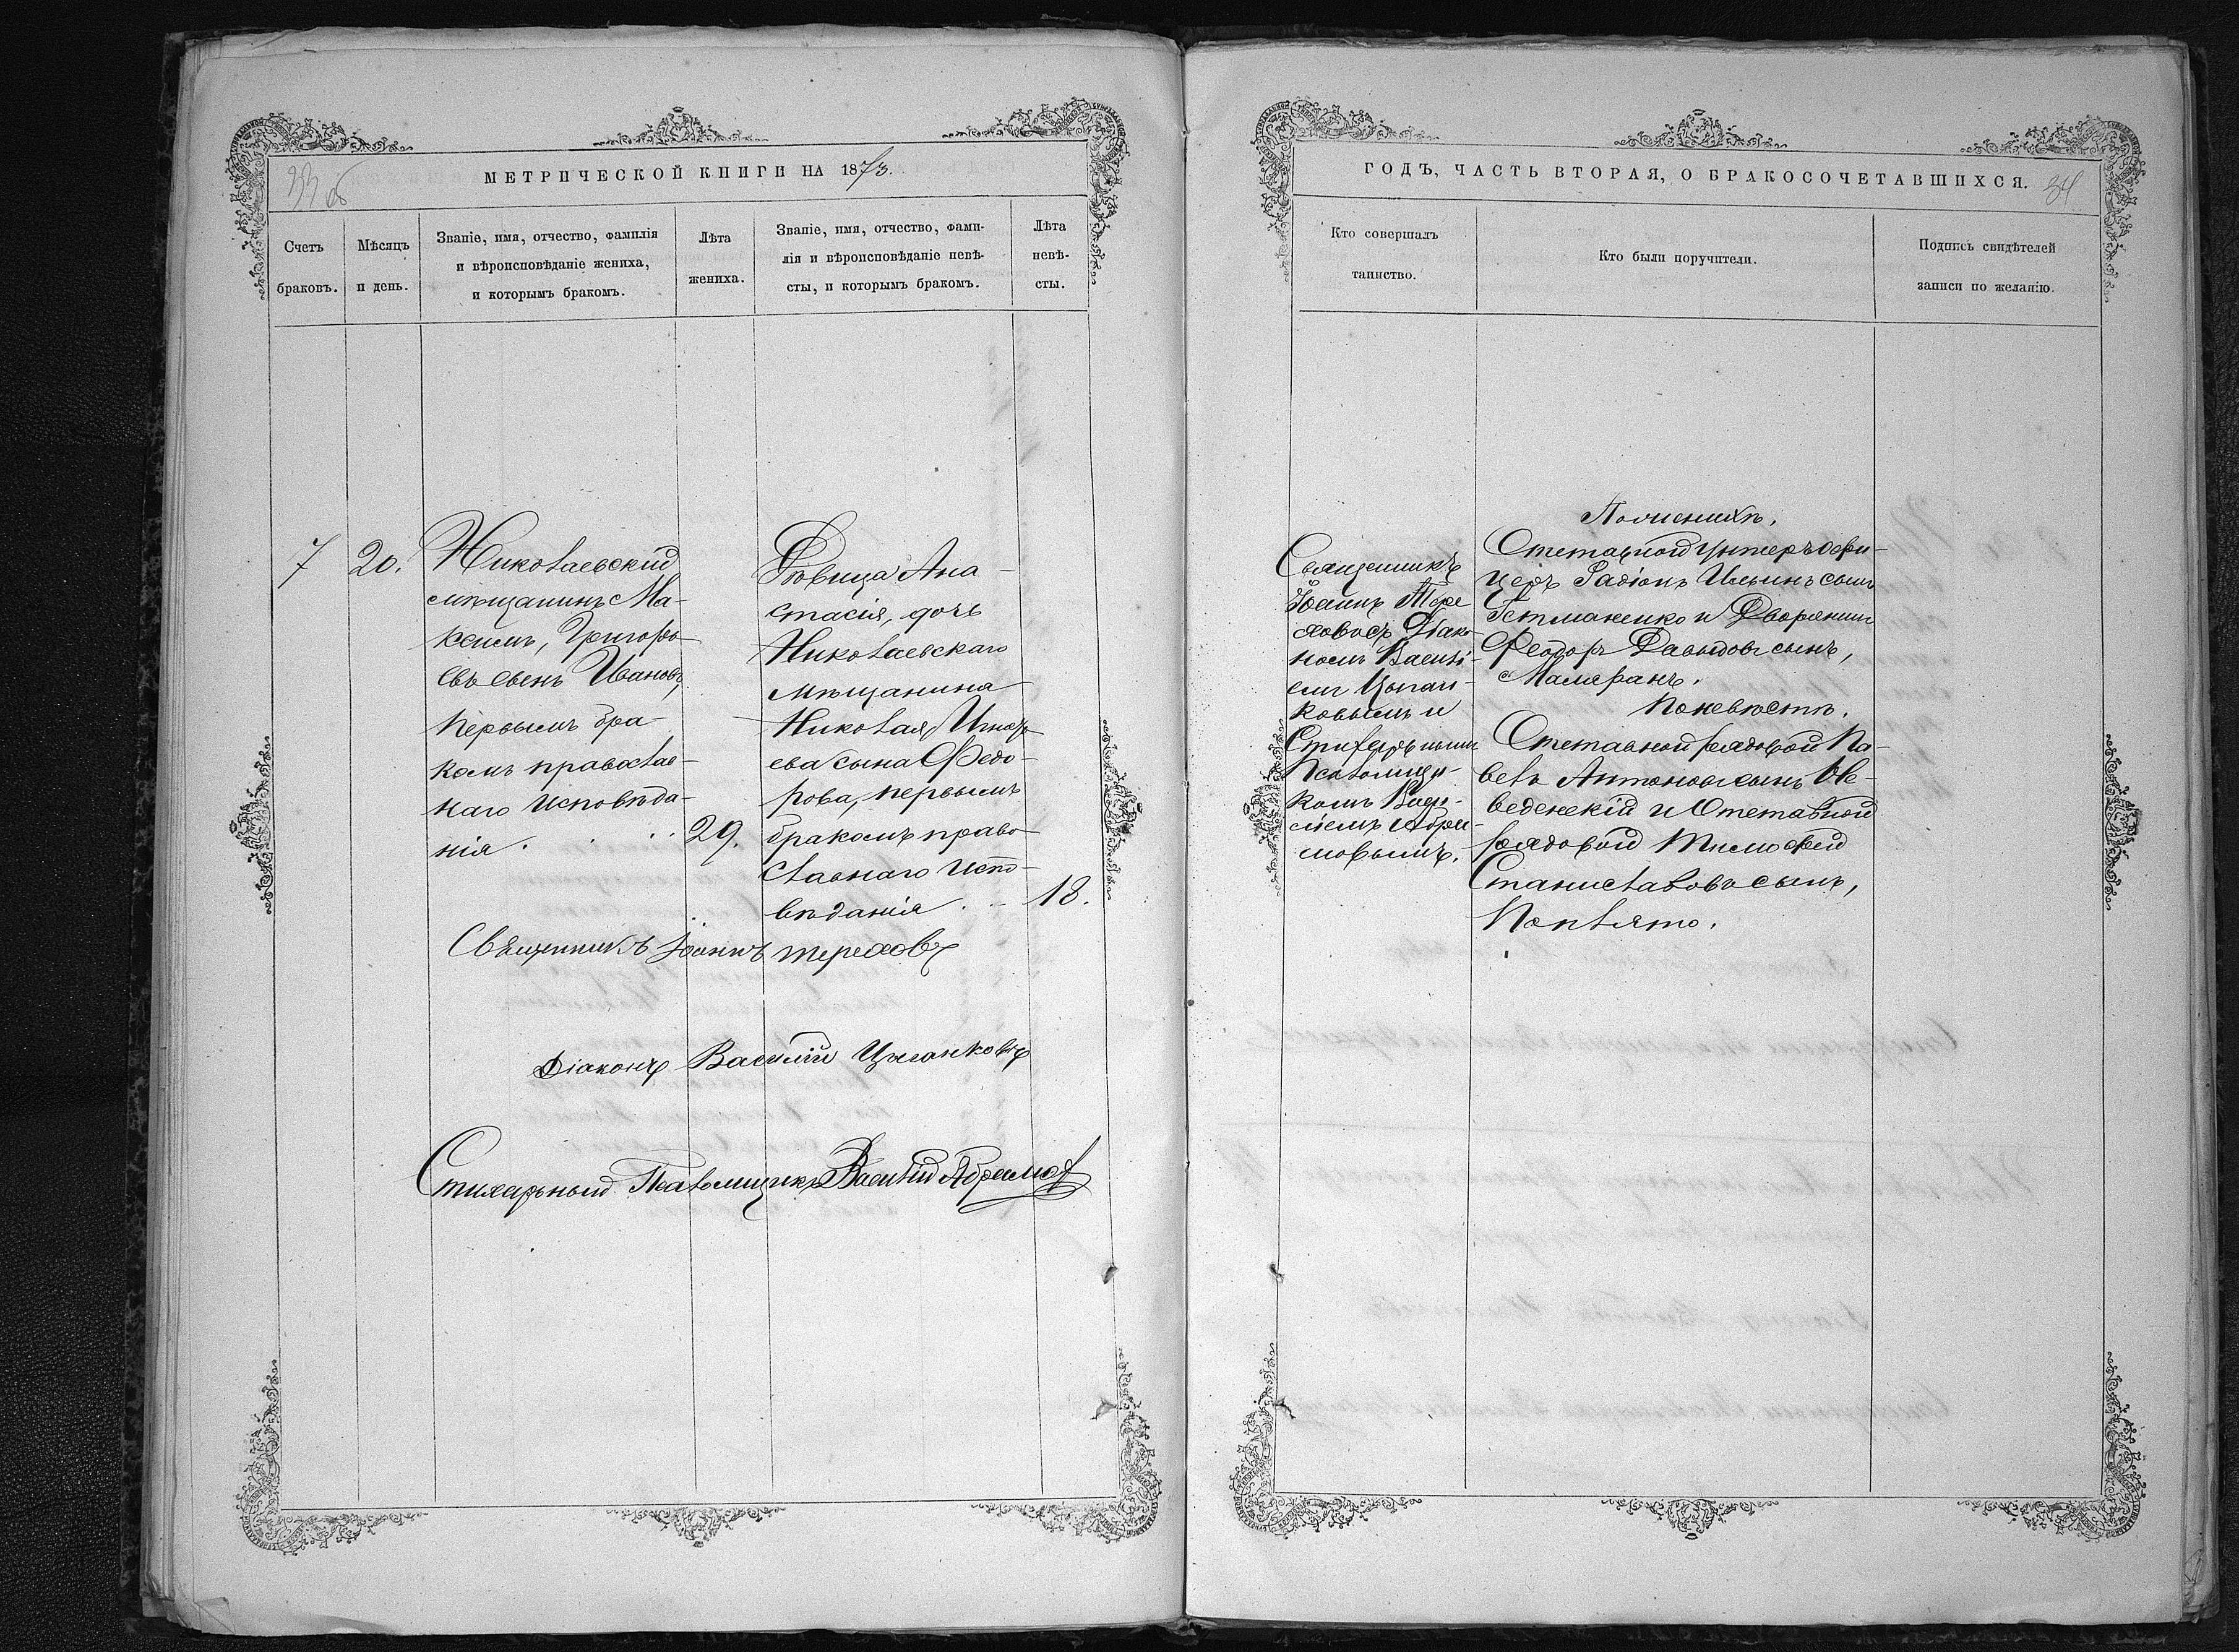 33 об
МЕТРИЧЕСКОЙ КНИГИ НА 1873.
Счетъ браковъ.
Мѣсяцъ и день.
Званіе, имя, отчество, фамилія
и вѣроисповѣданіе жениха,
и которымъ бракомъ.
Лѣта жениха.
Званіе, имя, отчество, фами-
лія и вѣроисповѣданіе невѣ-
сты, и которымъ бракомъ.
Лѣта
невѣ-
сты.
7
20.
Николаевскій
мѣщанинъ Ма-
ксимъ, Григорь-
евъ сынъ Ивановъ,
первымъ бра-
комъ православ-
наго исповѣда-
нія . . . . 29.
Дѣвица Ана-
стасія, дочь
Николаевскаго
мѣщанина
Николая,
ева сына Федо-
рова, первымъ
бракомъ право-
славнаго испо-
вѣданія . . . 18.
Священникъ Іоаннъ Тереховъ
Діаконъ Василій Цыганковъ
Стихарный Псаломщикъ Василій Абрамовъ
ГОДЪ, ЧАСТЬ ВТОРАЯ, О БРАКОСОЧЕТАВШИХСЯ.
34
Кто совершалъ
таинство.
Кто были поручители.
Подпись свидѣтелей
записи по желанію.
Священникъ
Іоаннъ Тере
ховъ съ Діако-
номъ Василі-
емъ Цыган-
ковымъ и
Стихарнымъ
Псаломщи-
комъ Васи-
ліемъ Абра-
мовымъ.
По женихѣ.
Отставной Унтеръ офи-
церъ Радіонъ Ильинъ сынъ
Гетманенко и Дворянинъ
Феодоръ Давыдовъ сынъ,
По невѣстѣ.
Отставной рядовой Па-
велъ Антоновъ сынъ Вве-
веденскій и Отставной
рядовой Тимофей
Станиславовъ сынъ,